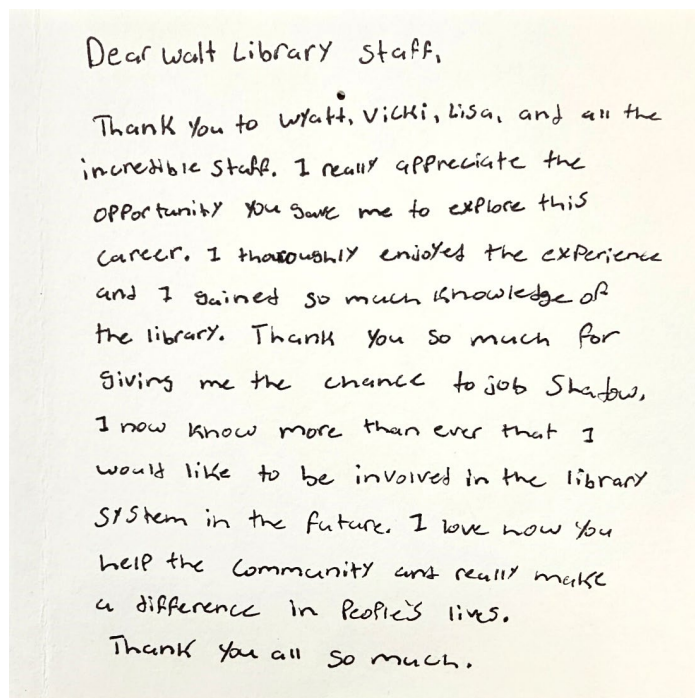 Dear Walt Library Staff,
Thank you to Wyatt, Vicki, Lisa, and all the
incredible staff. I really appreciate the
opportunity you gave me to explore this
career. I thoroughly enjoyed the experience
and I gained so much knowledge of
the library. Thank you so much for
giving me the chance to job shadow.
I now know more than ever that I
would like to be involved in the library
system in the future. I love how you
help the community and really make
a difference in people's lives.
Thank you all so much.